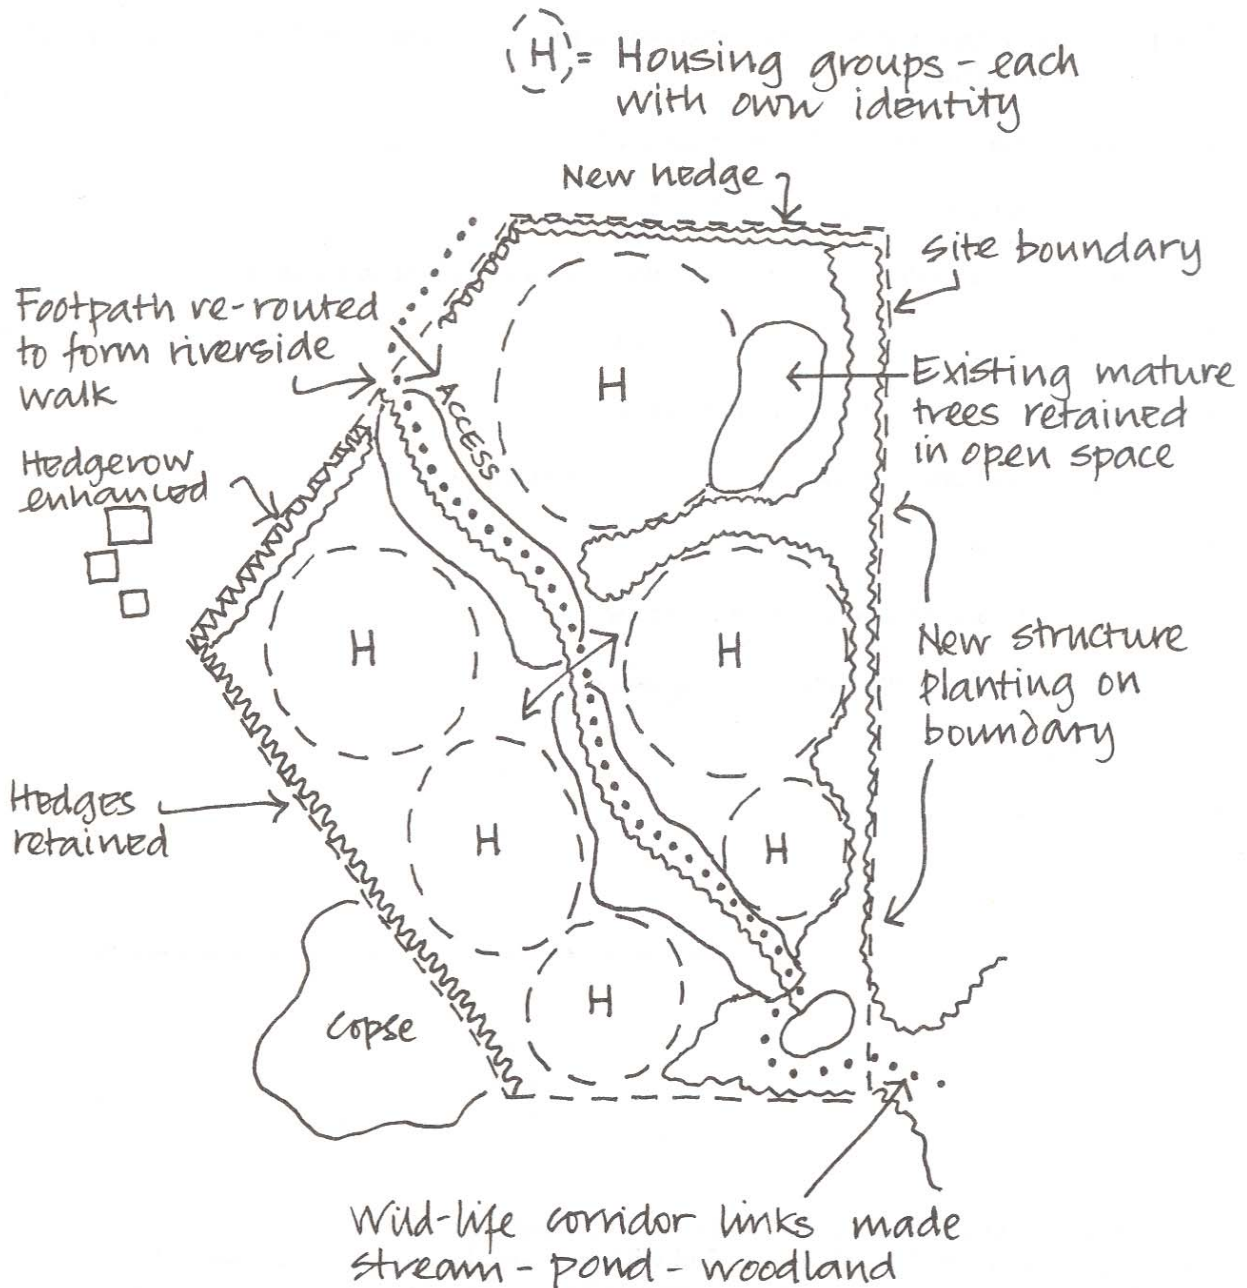 H = Housing groups - each
with own identity
New hedge
Site boundary
Footpath re-routed
to form riverside
walk
ACCESS
H
Existing mature
trees retained
in open space
Hedgerow
enhanced
H
H
New structure
planting on
boundary
Hedges
retained
H
H
H
copse
Wild-life corridor links made
stream - pond - woodland